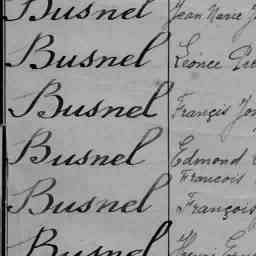 Busnel Jean Marie
Busnel Léonce
Busnel François
Busnel Edmond
François
Busnel François
Busnel Henri